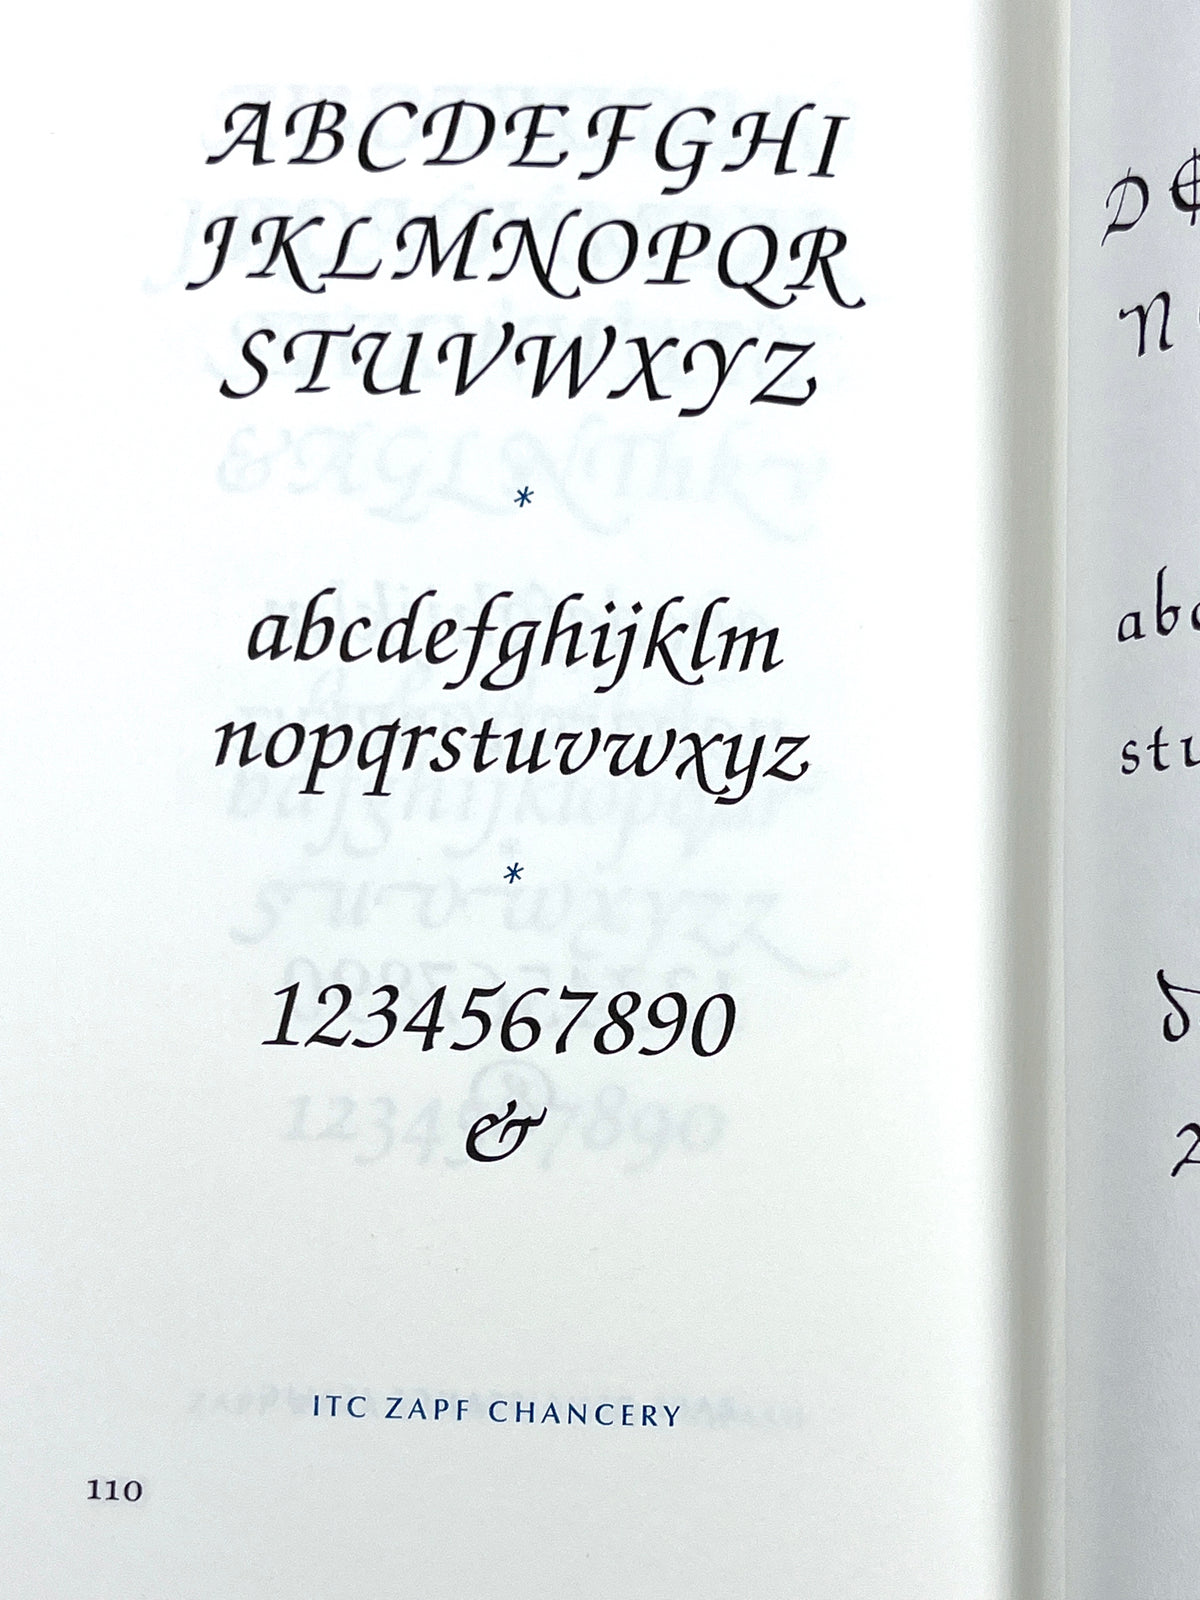 ABCDEFGHI
JKLMNOPQR
STUVWXYZ
*
abcdefghijklm
nopqrstuvwxyz
*
1234567890
&
ITC ZAPF CHANCERY
110
D
n
abc
stu